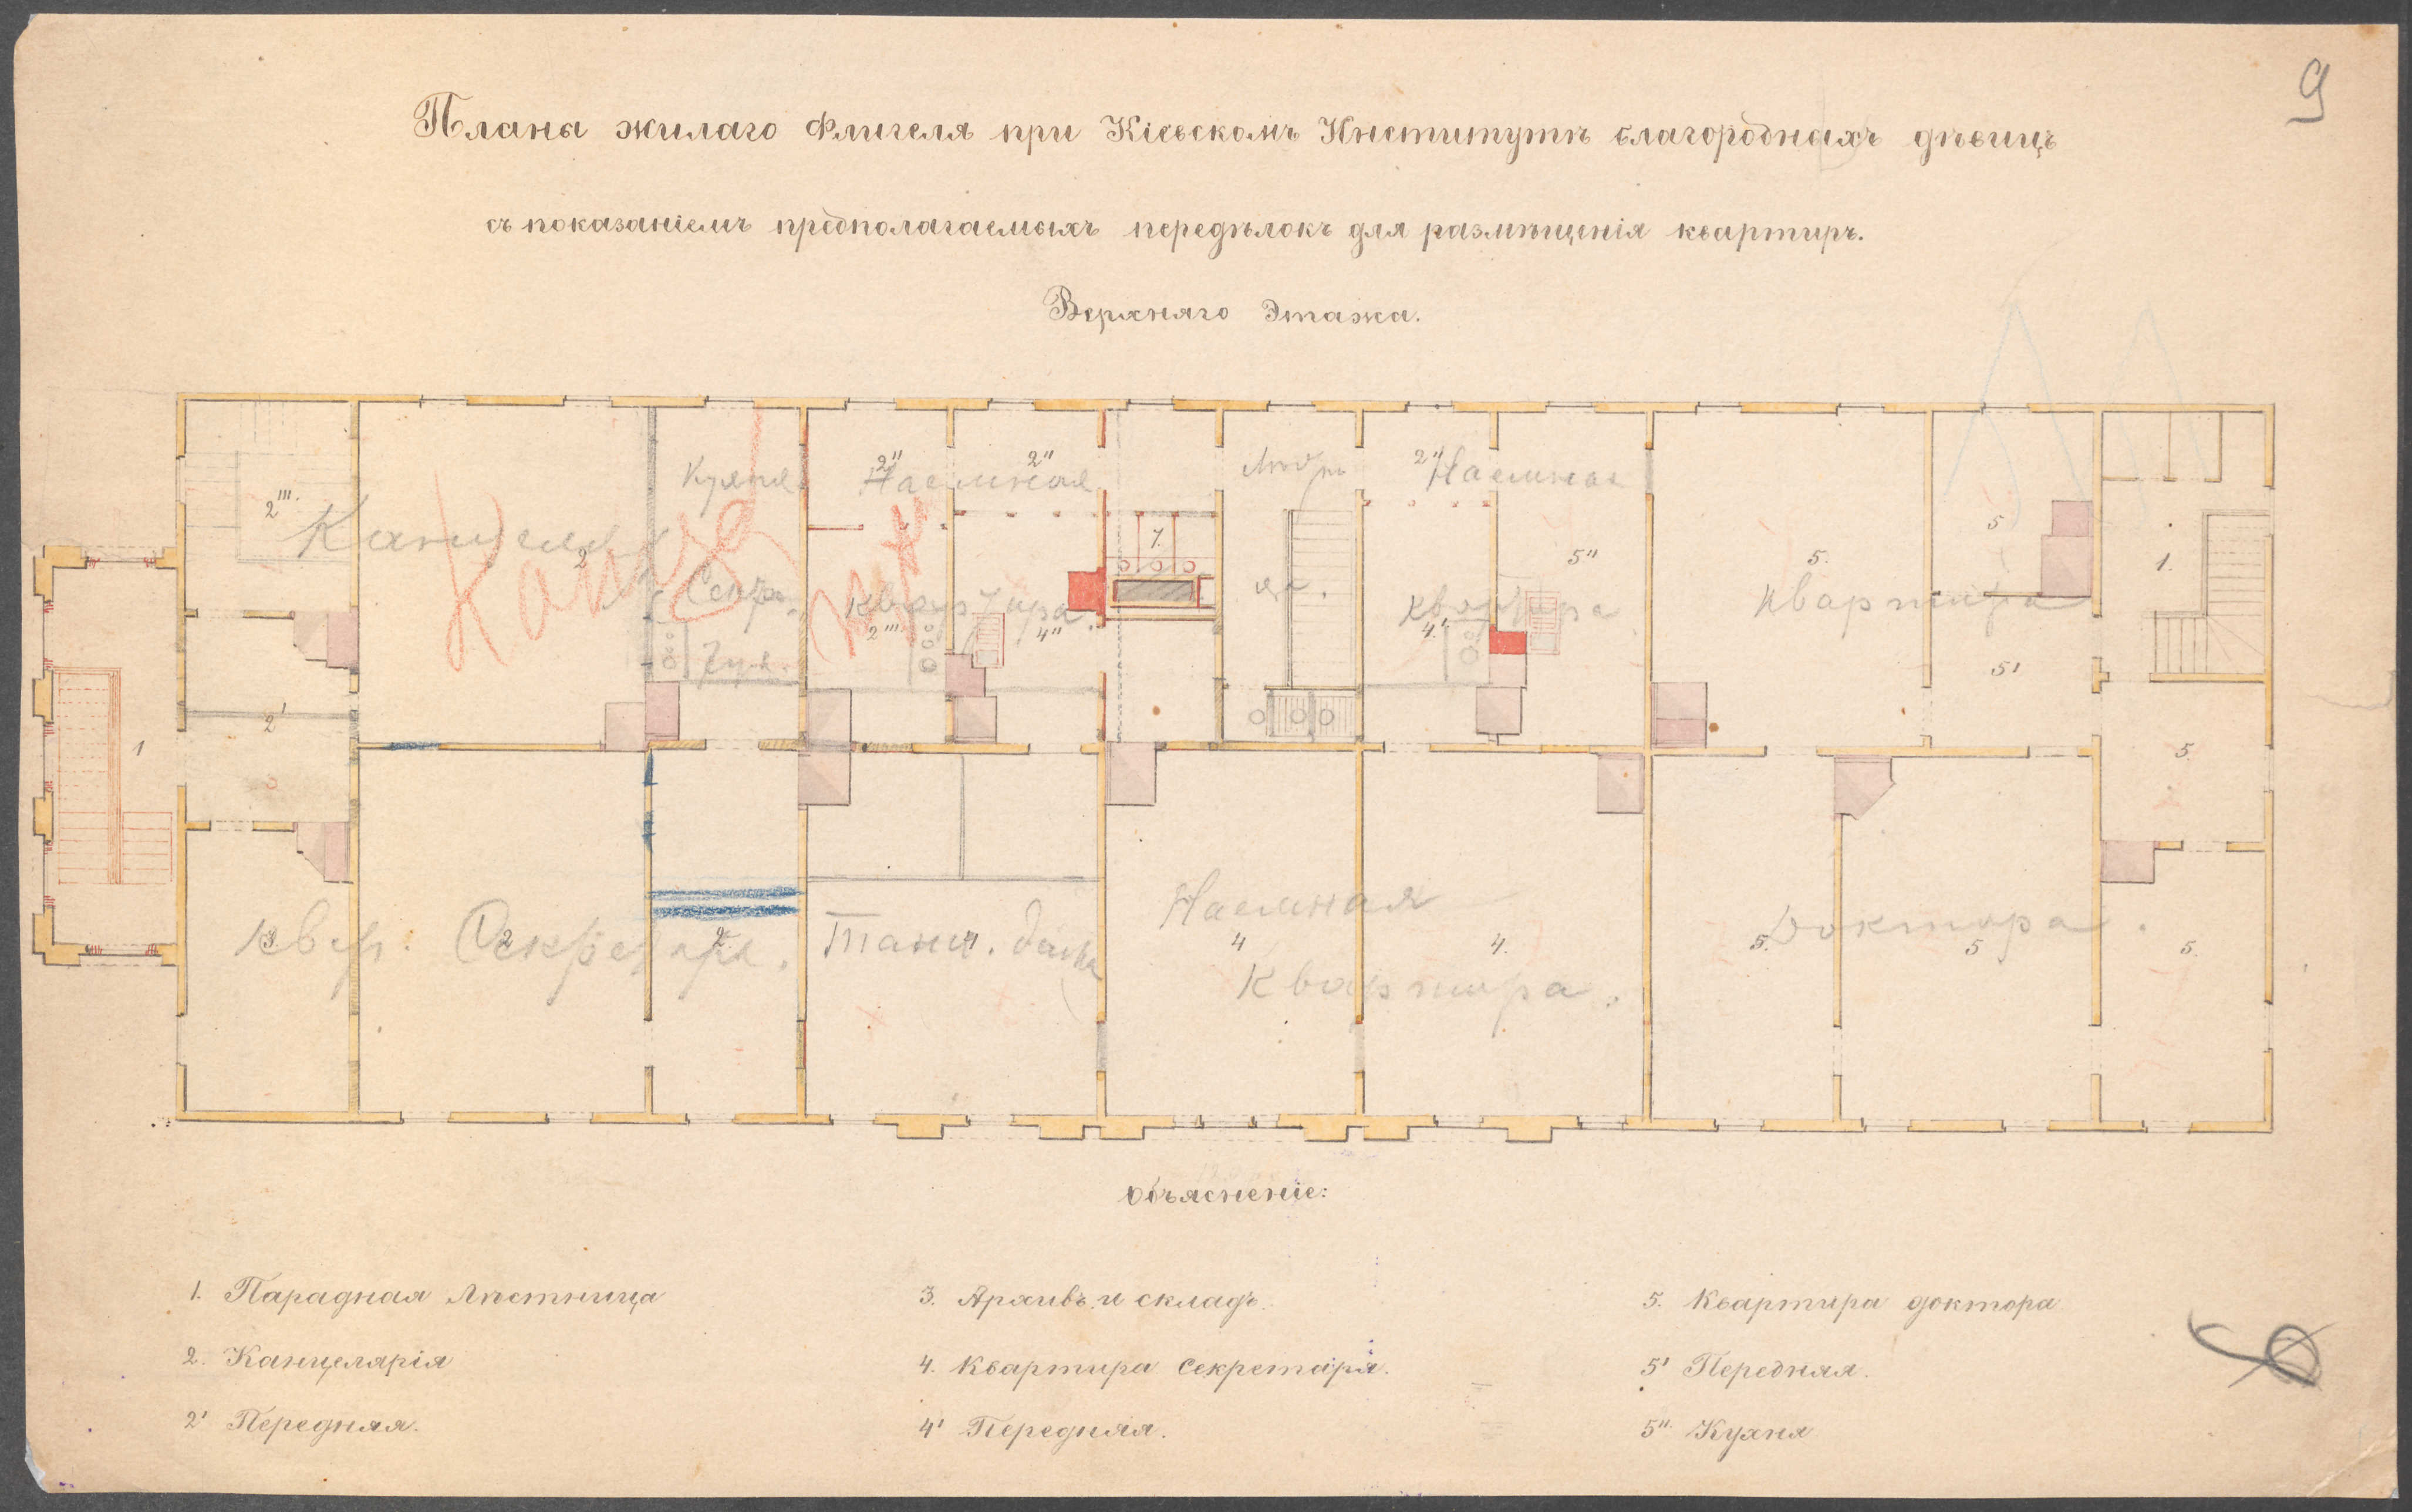 9
Плана жилаго Флигеля при Кіевскомъ Институтѣ благородныхъ дѣвицъ
съ показаніемъ предполагаемыхъ передѣлокъ для размѣщенія квартиръ.
Верхняго Этажа.
Кухня Наемная Наемная
2" 2" 2"
2'''. 2 7. 5" 5. 5 1.
Канц
квартира квартира квартира
2''' 4" 4' 5'
2' 1 5
Квар. Секретаря. Наемная Доктора.
3 2 2 4 4. 5. 5 5.
Квартира.
Объясненіе:
1. Парадная Лѣстница
2. Канцелярія
2' Передняя.
3. Архивъ и складъ.
4. Квартира Секретаря.
4' Передняя.
5. Квартира доктора
5' Передняя.
5" Кухня